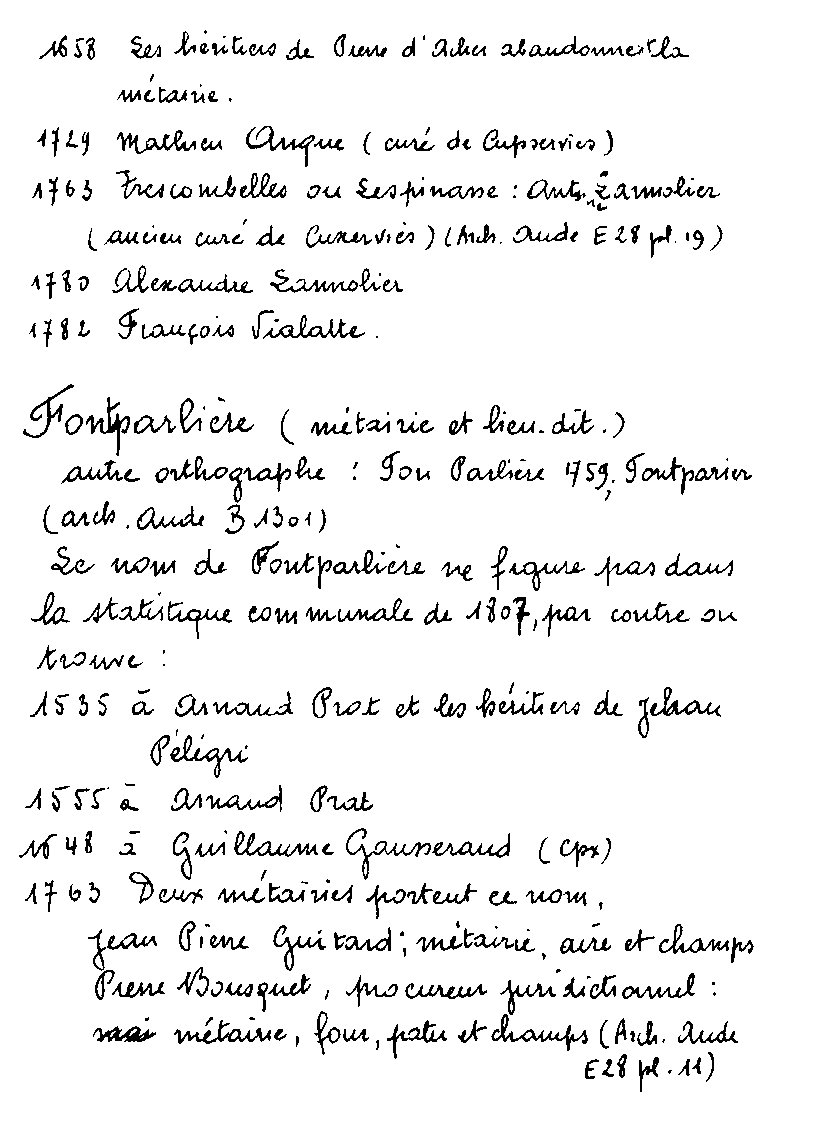 1658 Les héritiers de Pierre d'Acher abandonnent la
métairie.
1729 Mathieu Anque ( curé de Cupservies )
1763 Frescombelles ou Lespinasse : Ant.ne Lannolier
( ancien curé de Cuxerviès ) ( Arch. Aude E 28 pl. 19 )
1780 Alexandre Lannolier
1782 François Vialatte .
Fontparlière ( métairie et lieu-dit . )
autre orthographe : Fon Parlière 1759, Fontparier
( arch. Aude B 1301 )
Le nom de Fontparlière ne figure pas dans
la statistique communale de 1807, par contre on
trouve :
1535 à Arnaud Prat et les héritiers de Jehan
Péligri
1555 à Arnaud Prat
1648 à Guillaume Gausseraud ( cpx )
1763 Deux métairies portent ce nom,
Jean Pierre Guitard ; métairie, aire et champs
Pierre Bousquet , procureur juridictionnel :
métairie, four, patu et champs ( Arch. Aude
E 28 pl. 11 )